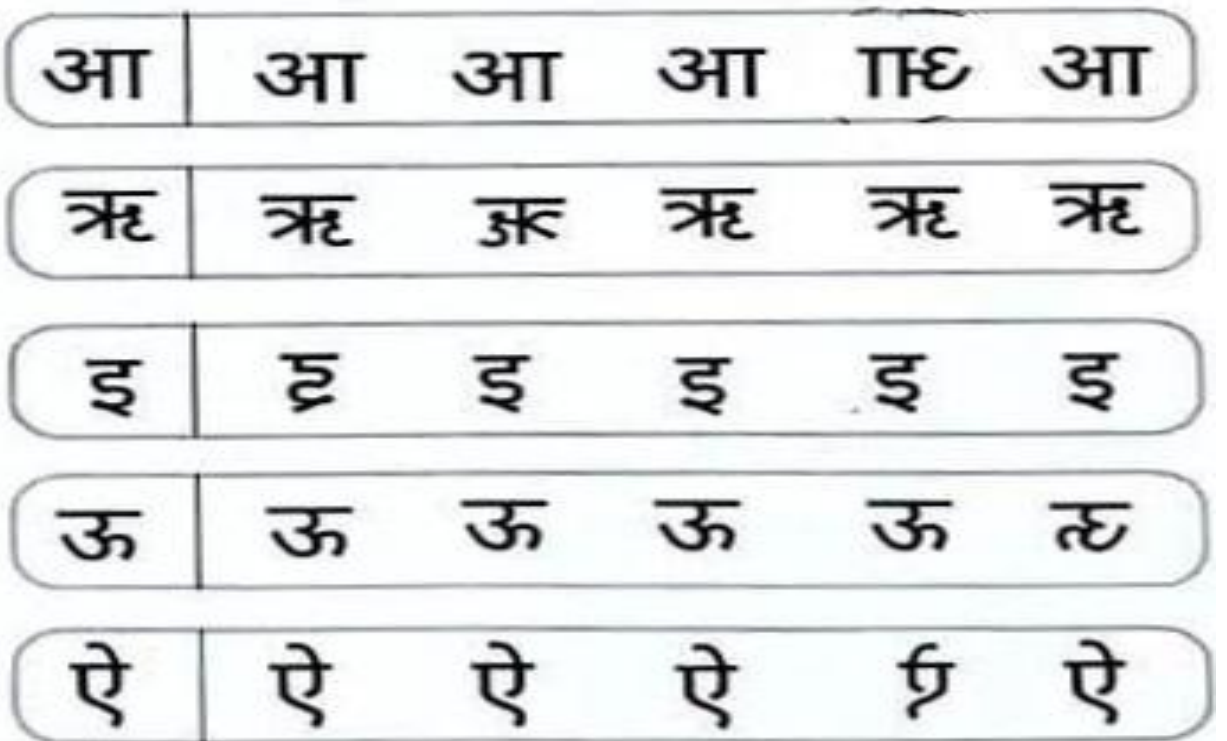 आ आ आ आ आ
ऋ ऋ ऋ ऋ ऋ
इ इ इ इ इ
ऊ ऊ ऊ ऊ ऊ
ऐ ऐ ऐ ऐ ऐ